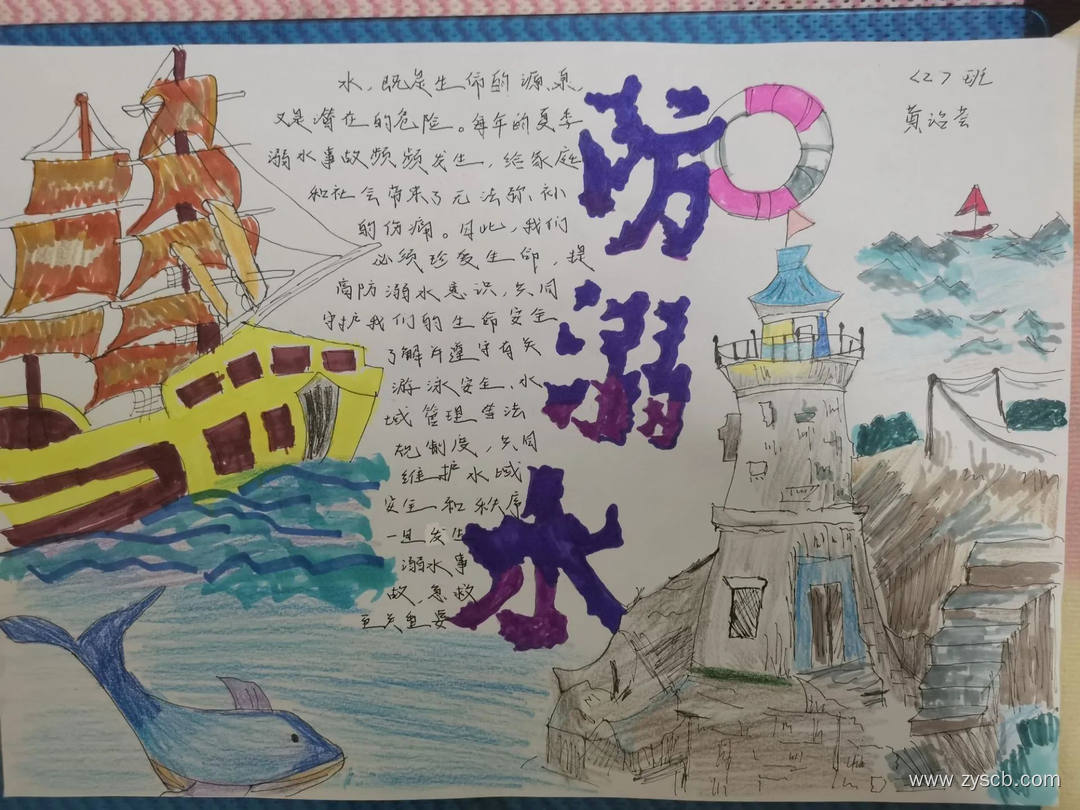 水，既是生命的源泉，
又是潜在的危险。每年的夏季
溺水事故频频发生，给家庭
和社会带来了无法弥补
的伤痛。因此，我们
必须珍爱生命，提
高防溺水意识，共同
守护我们的生命安全
了解并遵守有关
游泳安全、水
域管理等法
规制度，共同
维护水域
安全和秩序
一旦发生
溺水事
故，急救
至关重要
防
溺
水
<2>班
黄诒荟
www.zyscb.com